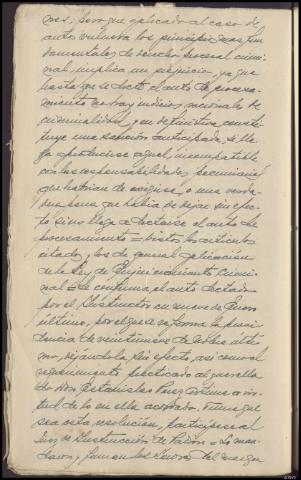 nes, pero que aplicado al caso de
autos vulnera los principios mas fun
damentales de derecho procesal crimi
nal, implica un perjuicio, ya que
hasta que se dicte el auto de procesa-
miento no hay indicios racionales de
criminalidad, y en definitiva consti-
tuye una sancion anticipada, si lle
ga a producirse aquel, incompatible
con las responsabilidades
que habrian de exigirse, o una
que habria de dejar sin efec-
to si no llega a dictarse el auto de
procesamiento = Vistos los articulos
citados, y los de general aplicacion
de la Ley de Enjuiciamiento Crimi-
nal = Se confirma el auto dictado
por el Instructor en nueve de Enero
último, por el que se reforma la provi-
dencia de veintiuno de
mo, dejandola sin efecto, asi como el
requerimiento efectuado al querella
do Don Estanislao Perez en vir-
tud de lo en ella acordado. Firme que
sea esta resolución, participese al
Juez de Instrucción de Padrón = Lo man-
daron y firman los Señores del margen